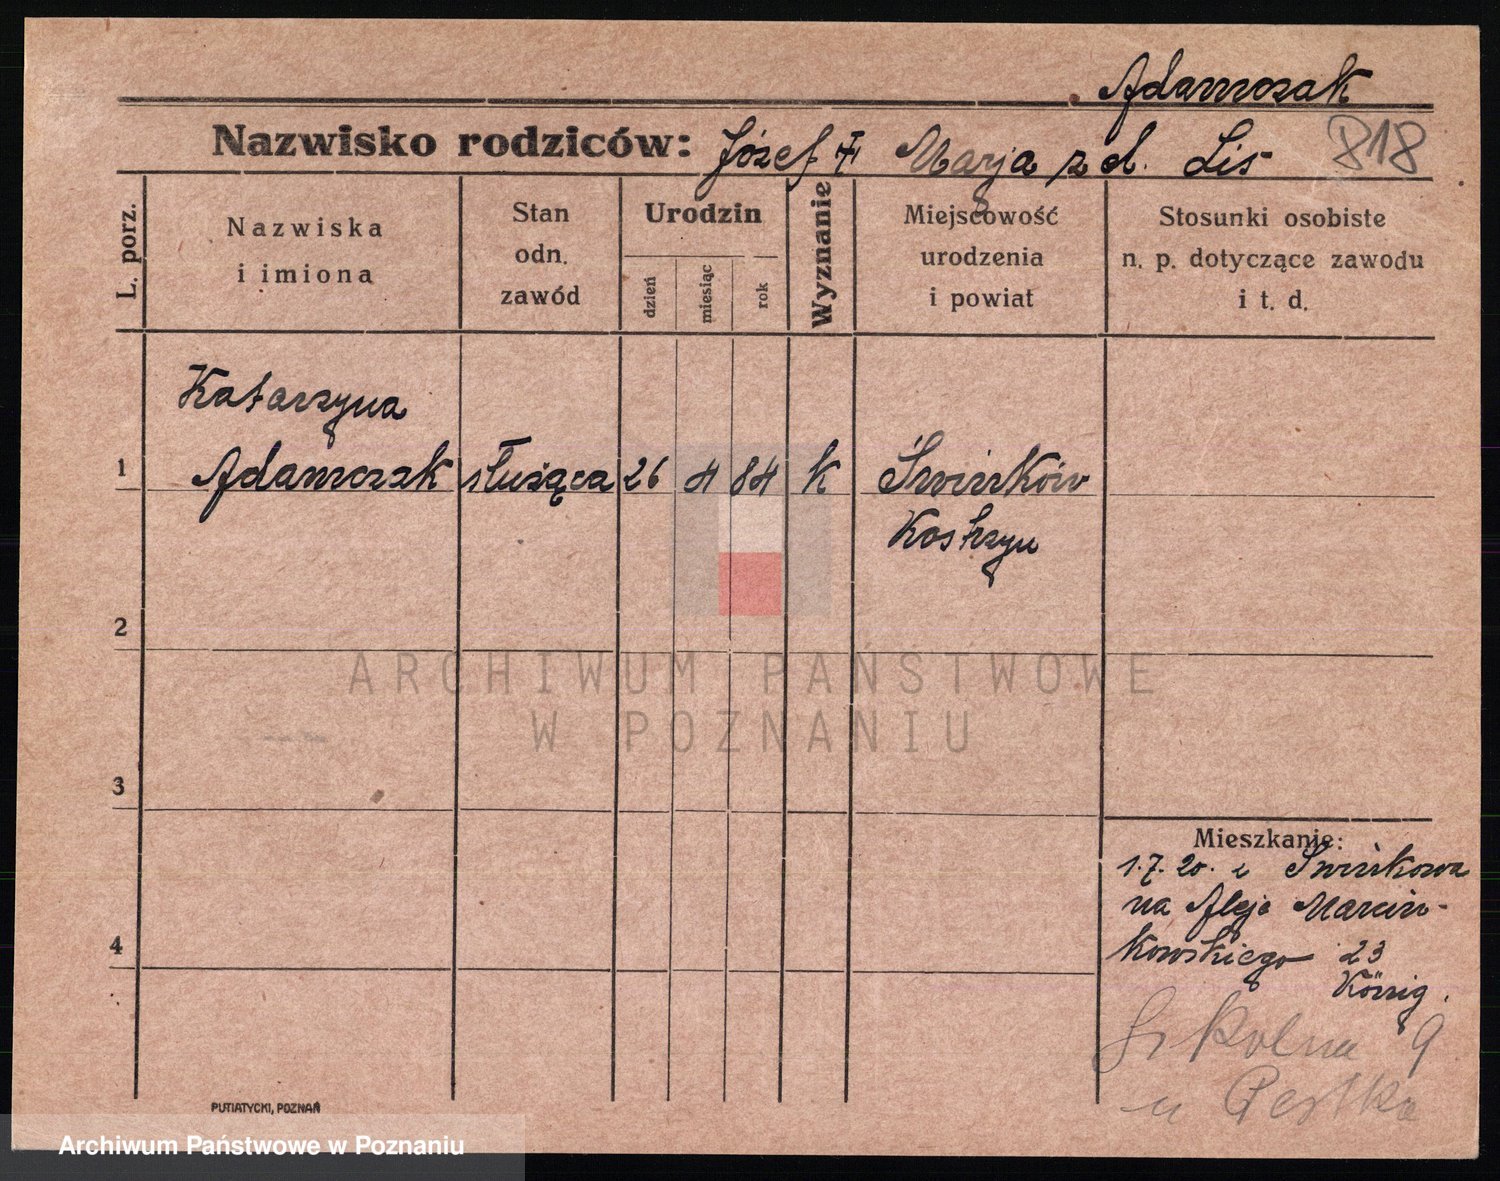 Adamczak
Nazwisko rodziców: Józef Marja z d. Lis 818
L. porz.
Nazwiska
i imiona
Stan
odn.
zawód
Urodzin
dzień
miesiąc
rok
Wyznanie
Miejscowość
urodzenia
i powiat
Stosunki osobiste
n. p. dotyczące zawodu
i t. d.
Katarzyna
1 Adamczak służąca 26 4 84 k Swinków
Kostrzyn
2
ARCHIWUM PAŃSTWOWE
W POZNANIU
3
Mieszkanie:
1.7.20. z Swinkowa
na Aleje Marcin-
4 kowskiego 23
König.
Szkolna 9
u
PUTIATYCKI, POZNAŃ
Archiwum Państwowe w Poznaniu